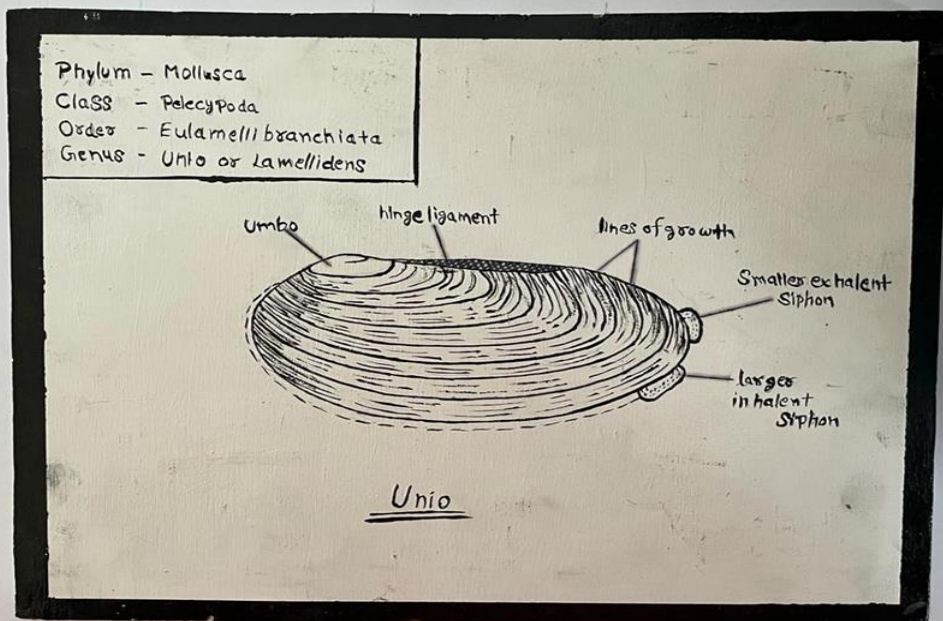 Phylum - Mollusca
Class - Pelecypoda
Order - Eulamellibranchiata
Genus - Unio or Lamellidens
umbo
hinge ligament
lines of growth
Smaller exhalent
Siphon
larger
inhalent
Siphon
Unio